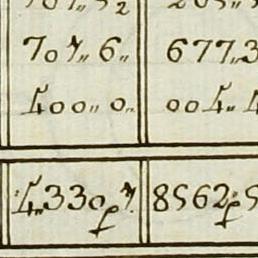 707„ 6„ 677„3
400„ 0„ 004„4
4„330 7 8562 5